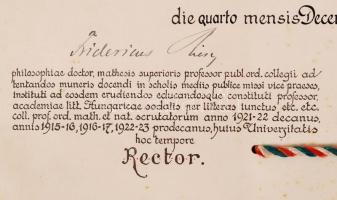 die quarto mensis Decem
Fridericus Riesz
philosophiae doctor, mathesis superioris professor publ. ord. collegii ad
tentandos muneris docendi in scholis mediis publice missi vice praeses,
instituti ad eosdem erudiendos educandosque constituti professor,
academiae litt. Hungaricae sodalis per litteras iunctus etc. etc.
coll. prof. ord. math. et nat. scrutatorum anno 1921-22 decanus,
annis 1915-16, 1916-17, 1922-23 prodecanus, huius Universitatis
hoc tempore
Rector.